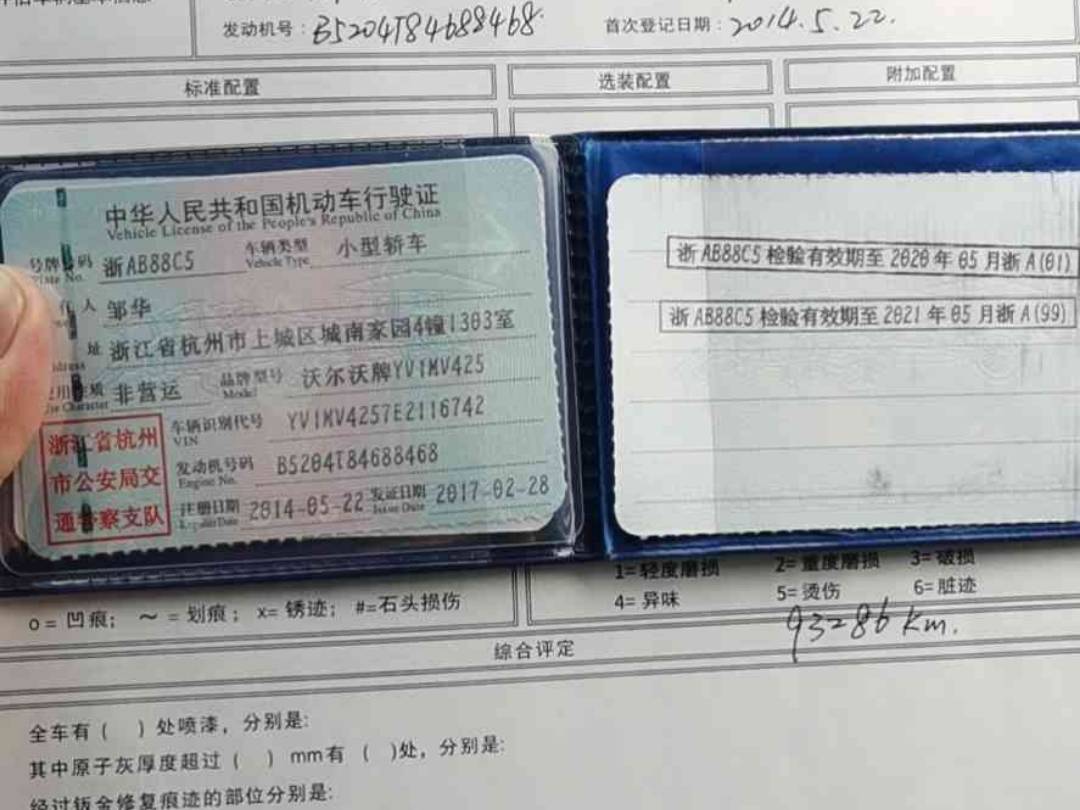 发动机号：B5204T84688468. 首次登记日期：2014.5.22.
标准配置 选装配置 附加配置
中华人民共和国机动车行驶证
Vehicle License of the People's Republic of China
号牌号码 浙AB88C5 车辆类型 小型轿车
Plate No. Vehicle Type
人 邹华
址 浙江省杭州市上城区城南家园4幢1303室
用 质 非营运 品牌型号 沃尔沃牌YV1MV425
Use Character Model
车辆识别代号 YV1MV4257E2116742
VIN
发动机号码 B5204T84688468
Engine No.
注册日期 2014-05-22 发证日期 2017-02-28
Issue Date
浙江省杭州
市公安局交
通警察支队
浙AB88C5检验有效期至2020年05月浙A(01)
浙AB88C5检验有效期至2021年05月浙A(99)
o=凹痕；～=划痕；x=锈迹；#=石头损伤
1=轻度磨损 2=重度磨损 3=破损
4=异味 5=烫伤 6=脏迹
93286 km.
综合评定
全车有（ ）处喷漆，分别是:
其中原子灰厚度超过（ ）mm有（ ）处，分别是:
经过钣金修复痕迹的部位分别是: